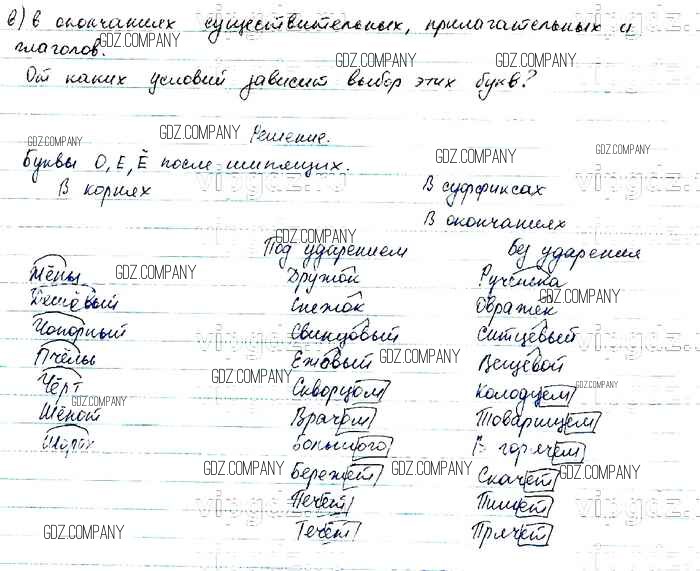 в) в окончаниях существительных, прилагательных и
глаголов.
От каких условий зависит выбор этих букв?
Решение.
Буквы О, Е, Ё после шипящих.
В корнях В суффиксах
В окончаниях
Под ударением Без ударения
Жёны Дружок Ручонка
Дешёвый Снежок Овражек
Чопорный Свинцовый Ситцевый
Пчёлы Ежовый Вещевой
Чёрт Скворцом Колодцем
Шёпот Врачом Товарищем
Шорох Большого В горячем
Бережёт Скачет
Печёт Пишет
Течёт Прячет
GDZ.COMPANY
vipgdz.ru